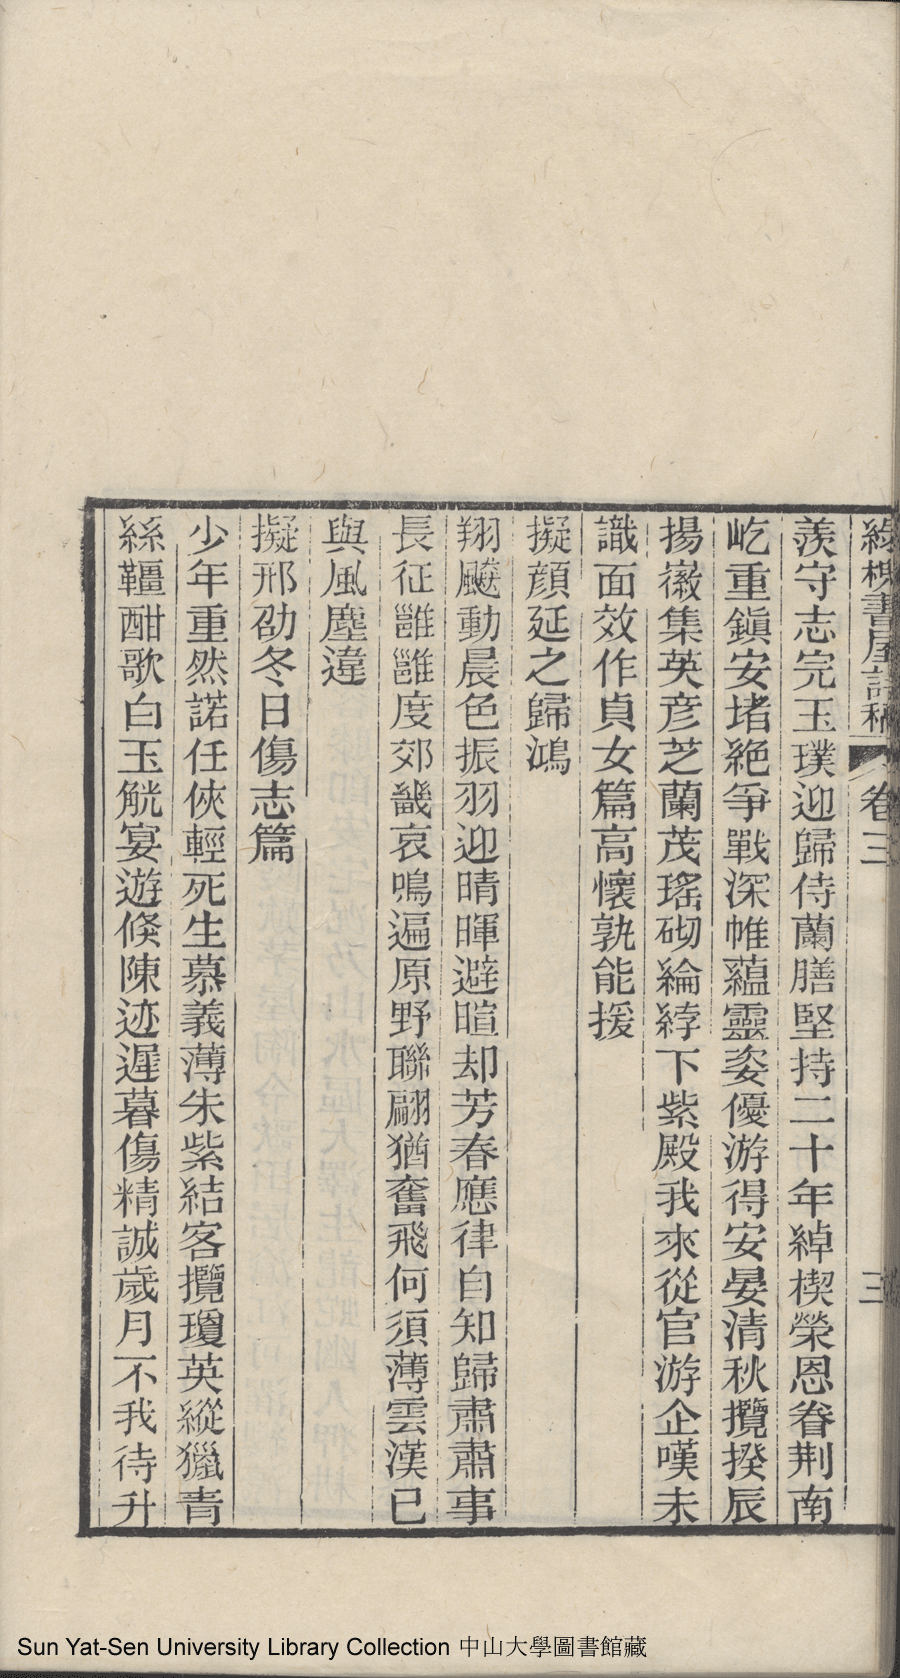 綠槐書屋詩稿 卷三 三
羨守志完玉璞迎歸侍蘭膳堅持二十年綽楔榮恩眷荆南
屹重鎮安堵絶爭戰深帷蘊靈姿優游得安晏清秋攬揆辰
揚徽集英彦芝蘭茂瑤砌綸綍下紫殿我來從官游企嘆未
識面效作貞女篇高懷孰能援
擬顔延之歸鴻
翔飈動晨色振羽迎晴暉避暄却芳春應律自知歸肅肅事
長征雝雝度郊畿哀鳴遍原野聯翩猶奮飛何須薄雲漢已
與風塵違
擬邢劭冬日傷志篇
少年重然諾任俠輕死生慕義薄朱紫結客攬瓊英縱獵青
絲韁酣歌白玉觥宴遊倏陳迹遲暮傷精誠歲月不我待升
Sun Yat-Sen University Library Collection 中山大學圖書館藏